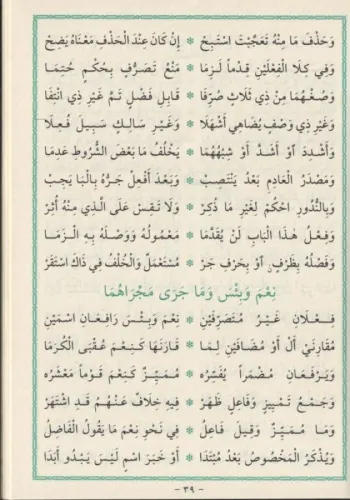 وَحَذْفَ مَا مِنْهُ تَعَجَّبْتَ اسْتَبِحْ * إِنْ كَانَ عِنْدَ الْحَذْفِ مَعْنَاهُ يَضِحْ
وَفِي كِلَا الْفِعْلَيْنِ قِدْماً لَزِمَا * مَنْعُ تَصَرُّفٍ بِحُكْمٍ حُتِمَا
وَصُغْهُمَا مِنْ ذِي ثَلَاثٍ صُرِّفَا * قَابِلِ فَضْلٍ تَمَّ غَيْرِ ذِي انْتِفَا
وَغَيْرِ ذِي وَصْفٍ يُضَاهِي أَشْهَلَا * وَغَيْرِ سَالِكٍ سَبِيلَ فُعِلَا
وَأَشْدِدَ أَوْ أَشَدَّ أَوْ شِبْهُهُمَا * يَخْلُفُ مَا بَعْضَ الشُّرُوطِ عَدِمَا
وَمَصْدَرُ الْعَادِمِ بَعْدُ يَنْتَصِبْ * وَبَعْدَ أَفْعِلْ جَرُّهُ بِالْبَا يَجِبْ
وَبِالنُّدُورِ احْكُمْ لِغَيْرِ مَا ذُكِرْ * وَلَا تَقِسْ عَلَى الَّذِي مِنْهُ أُثِرْ
وَفِعْلُ هٰذَا الْبَابِ لَنْ يُقَدَّمَا * مَعْمُولُهُ وَوَصْلُهُ بِهِ الْزَمَا
وَفَصْلُهُ بِظَرْفٍ أَوْ بِحَرْفِ جَرْ * مُسْتَعْمَلٌ وَالْخُلْفُ فِي ذَاكَ اسْتَقَرْ
نِعْمَ وَبِئْسَ وَمَا جَرَى مَجْرَاهُمَا
فِعْلَانِ غَيْرُ مُتَصَرِّفَيْنِ * نِعْمَ وَبِئْسَ رَافِعَانِ اسْمَيْنِ
مُقَارِنَيْ أَلْ أَوْ مُضَافَيْنِ لِمَا * قَارَنَهَا كَنِعْمَ عُقْبَى الْكُرَمَا
وَيَرْفَعَانِ مُضْمَراً يُفَسِّرُهْ * مُمَيِّزٌ كَنِعْمَ قَوْماً مَعْشَرُهْ
وَجَمْعُ تَمْيِيزٍ وَفَاعِلٍ ظَهَرْ * فِيهِ خِلَافٌ عَنْهُمُ قَدِ اشْتَهَرْ
وَمَا مُمَيِّزٌ وَقِيلَ فَاعِلُ * فِي نَحْوِ نِعْمَ مَا يَقُولُ الْفَاضِلُ
وَيُذْكَرُ الْمَخْصُوصُ بَعْدُ مُبْتَدَا * أَوْ خَبَرَ اسْمٍ لَيْسَ يَبْدُو أَبَدَا
- ٣٩ -